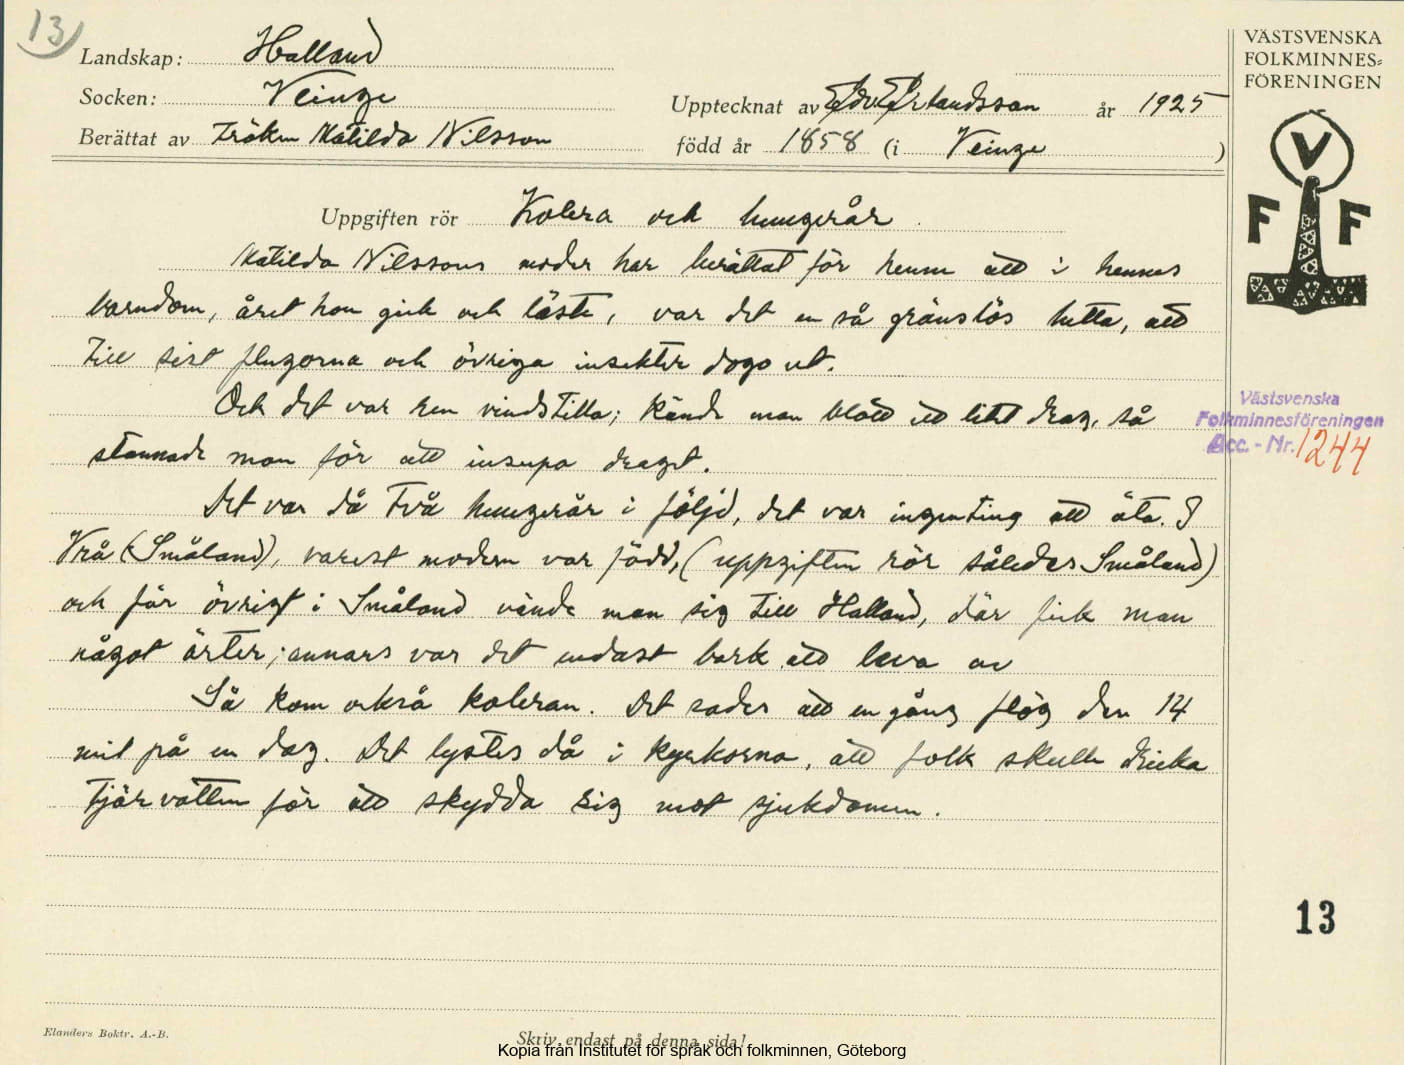 13
Landskap: Halland
Socken: Veinge
Upptecknat av Edv Erlandsson år 1925
Berättat av Fröken Matilda Nilsson född år 1858 (i Veinge)
Uppgiften rör Kolera och hungerår.
Matilda Nilssons moder har berättat för henne att i hennes
barndom, året hon gick och läste, var det en så gränslös hetta, att
till sist flugorna och övriga insekter dogo ut.
Och det var hen vindstilla; kände man blott ett litet drag, så
stannade man för att insupa draget.
Det var då två hungerår i följd, det var ingenting att äta. I
Vrå (Småland), varest modern var född, (uppgiften rör således Småland)
och för övrigt i Småland vände man sig till Halland, där fick man
något ärter; annars var det endast bark att leva av
Så kom också koleran. Det sades att en gång flög den 14
mil på en dag. Det lystes då i kyrkorna, att folk skulle dricka
tjärvatten för att skydda sig mot sjukdomen.
VÄSTSVENSKA
FOLKMINNES=
FÖRENINGEN
V
F F
Västsvenska
Folkminnesföreningen
Acc. - Nr. 1244
13
Elanders Boktr. A.-B.
Skriv endast på denna sida!
Kopia från Institutet för språk och folkminnen, Göteborg